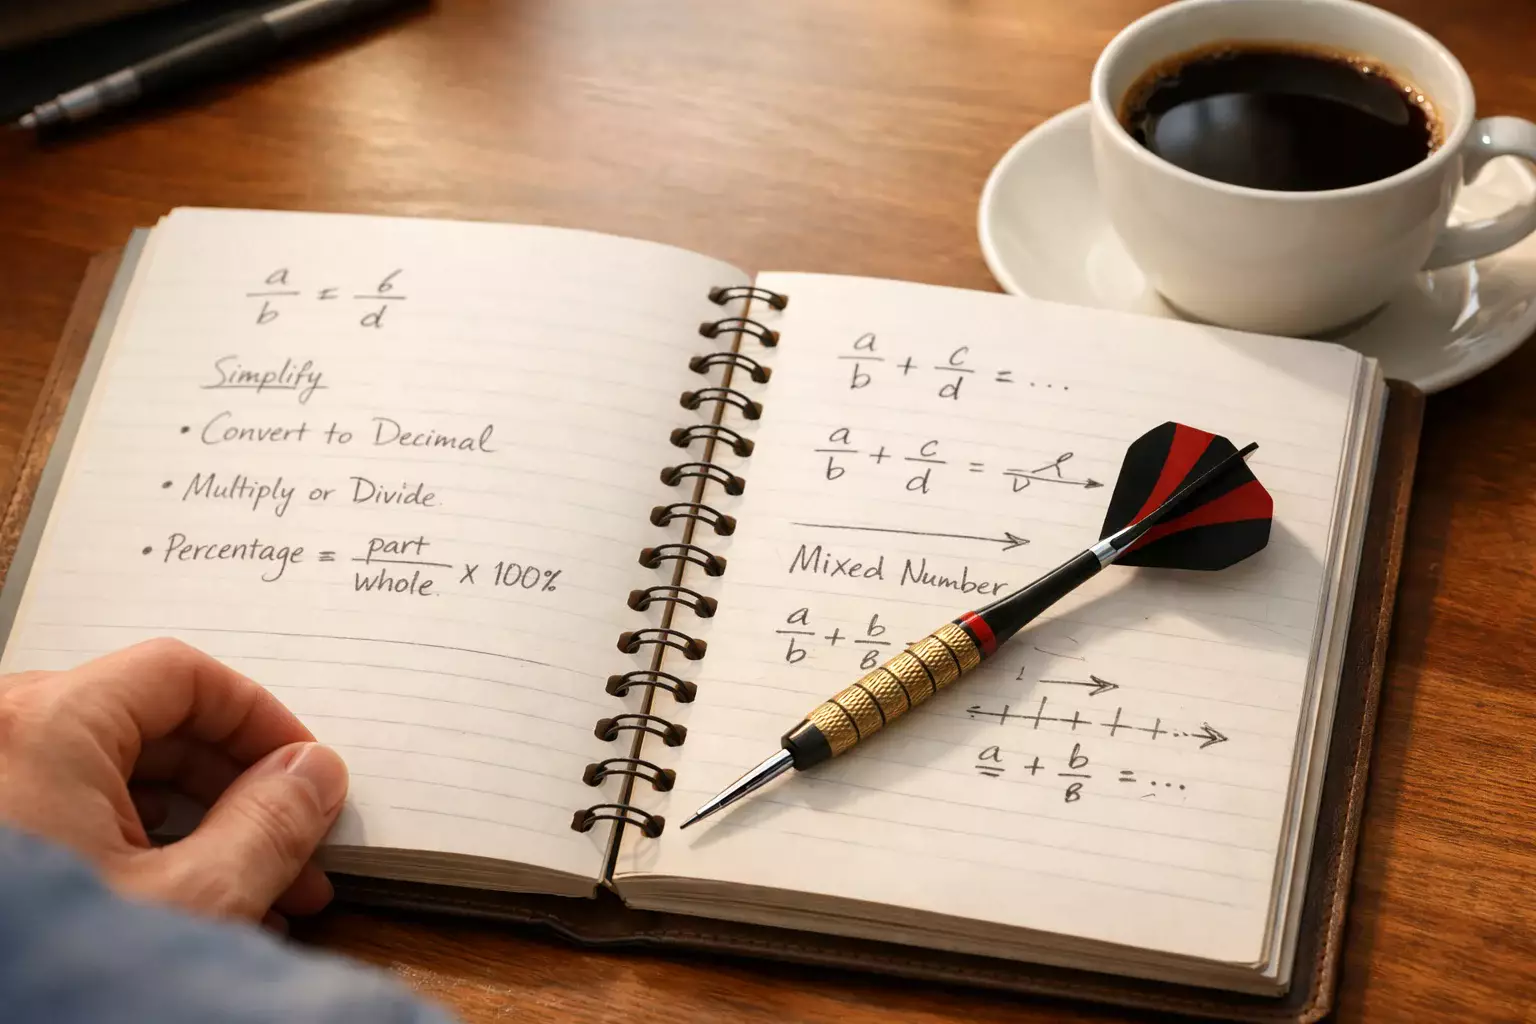 a/b = 6/d
Simplify
• Convert to Decimal
• Multiply or Divide.
• Percentage = part/whole. x 100%
a/b + c/d = ...
a/b + c/d =
Mixed Number
a/b + b/8
a + b/8 = ...